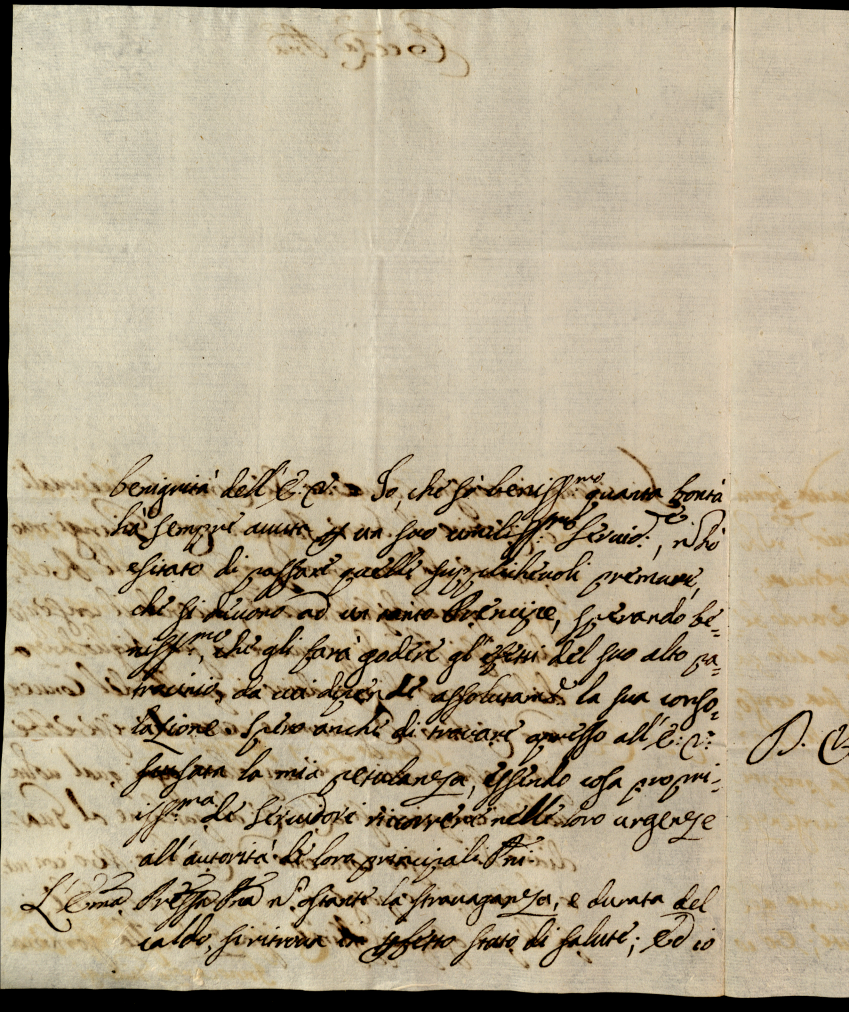 benignità dell'E: V: Io, che sò beniss:mo quanta bontà
hà sempre avuta p un suo umiliss:mo Servid:re, nō hò
esitato di passare quelle supplichevoli premure,
che si devono ad un tanto Prencipe, sperando be-
niss:mo, che gli farà godere gl'effetti del suo alto pa-
trocinio, da cui dipende assolutam:te la sua conso-
lazione. Spero anche di trovare appresso all'E: V:
scusata la mia petulanza, essendo cosa propri-
iss:ma de Servidori ricorrere nelle loro urgenze
all'autorità de loro principali Pñi:
L'Em̃a Prp̃ssa Pñā nō ostante la stravaganza, e durata del
caldo, si ritrova in pfetto stato di salute; ed io
D.